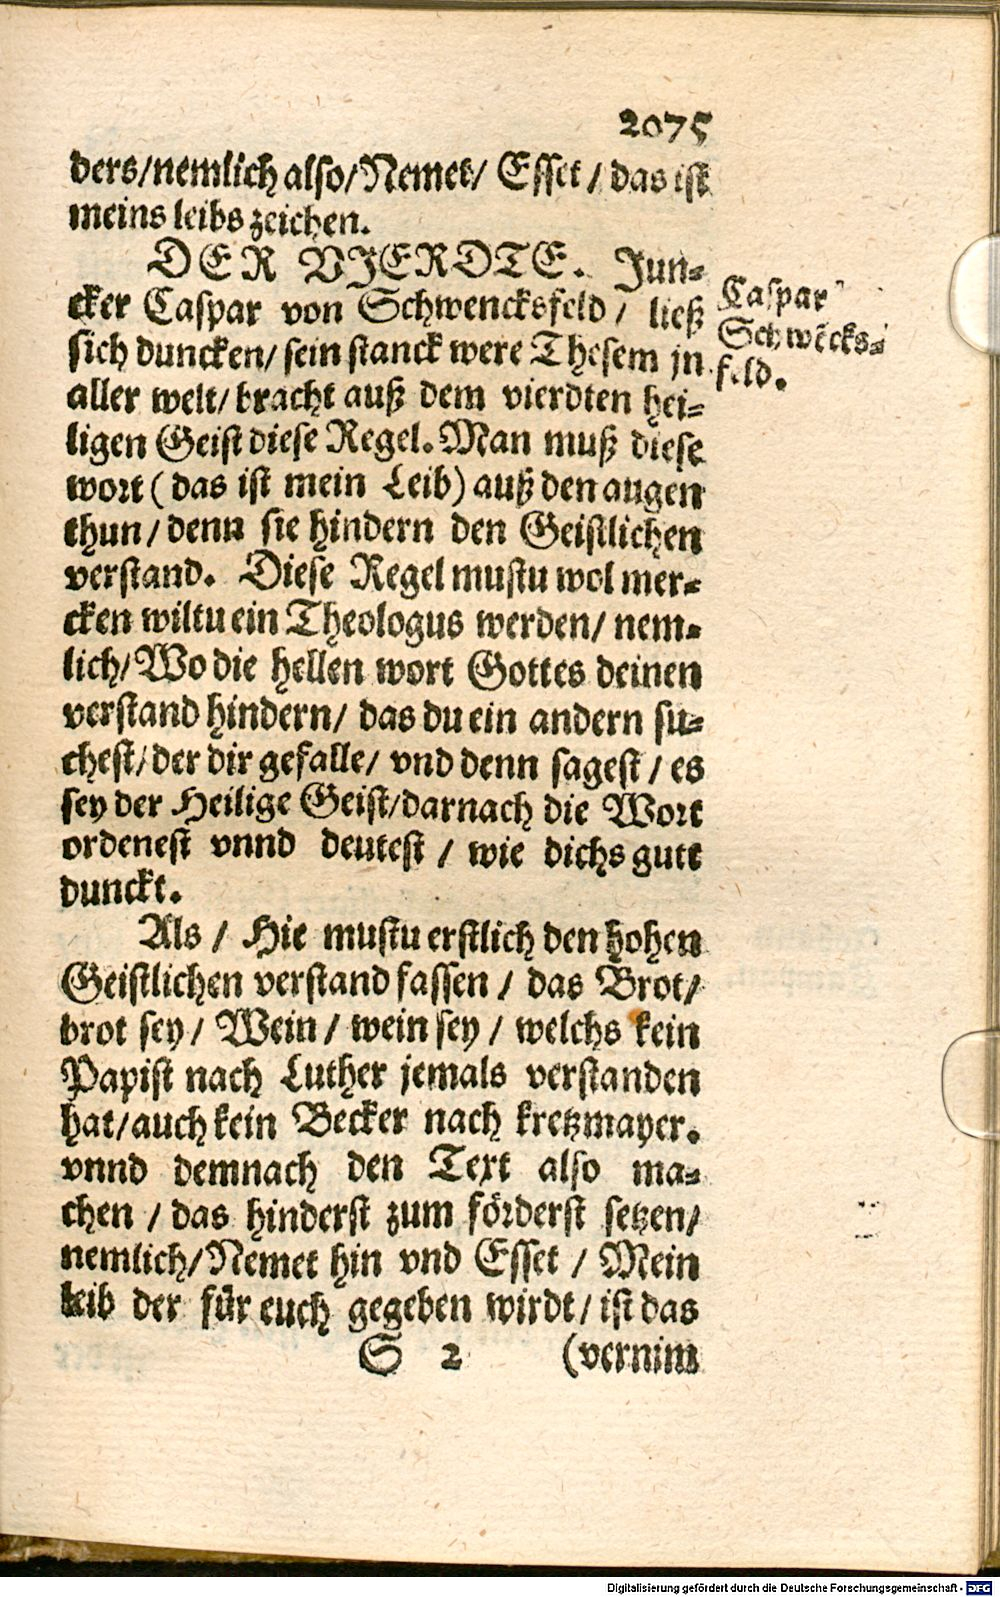 2075
ders/nemlich also/Nemet/ Esset / das ist
meins leibs zeichen.
DER VJERDTE. Jun-
cker Caspar von Schwencksfeld / ließ
sich duncken/ sein stanck were Thesem jn
aller welt/ bracht auß dem vierdten hei-
ligen Geist diese Regel. Man muß diese
wort ( das ist mein Leib) auß den augen
thun/ denn sie hindern den Geistlichen
verstand. Diese Regel mustu wol mer-
cken wiltu ein Theologus werden/ nem-
lich/ Wo die hellen wort Gottes deinen
verstand hindern/ das du ein andern su-
chest/ der dir gefalle/ vnd denn sagest / es
sey der Heilige Geist/darnach die Wort
ordenest vnnd deutest / wie dichs gutt
dunckt.
Als / Hie mustu erstlich den hohen
Geistlichen verstand fassen / das Brot/
brot sey / Wein / wein sey / welchs kein
Papist nach Luther jemals verstanden
hat/auch kein Becker nach kretzmayer.
vnnd demnach den Text also ma-
chen / das hinderst zum förderst setzen/
nemlich/Nemet hin vnd Esset / Mein
leib der für euch gegeben wirdt/ ist das
S 2 (vernim
Caspar
Schwẽcks-
feld.
Digitalisierung gefördert durch die Deutsche Forschungsgemeinschaft - DFG